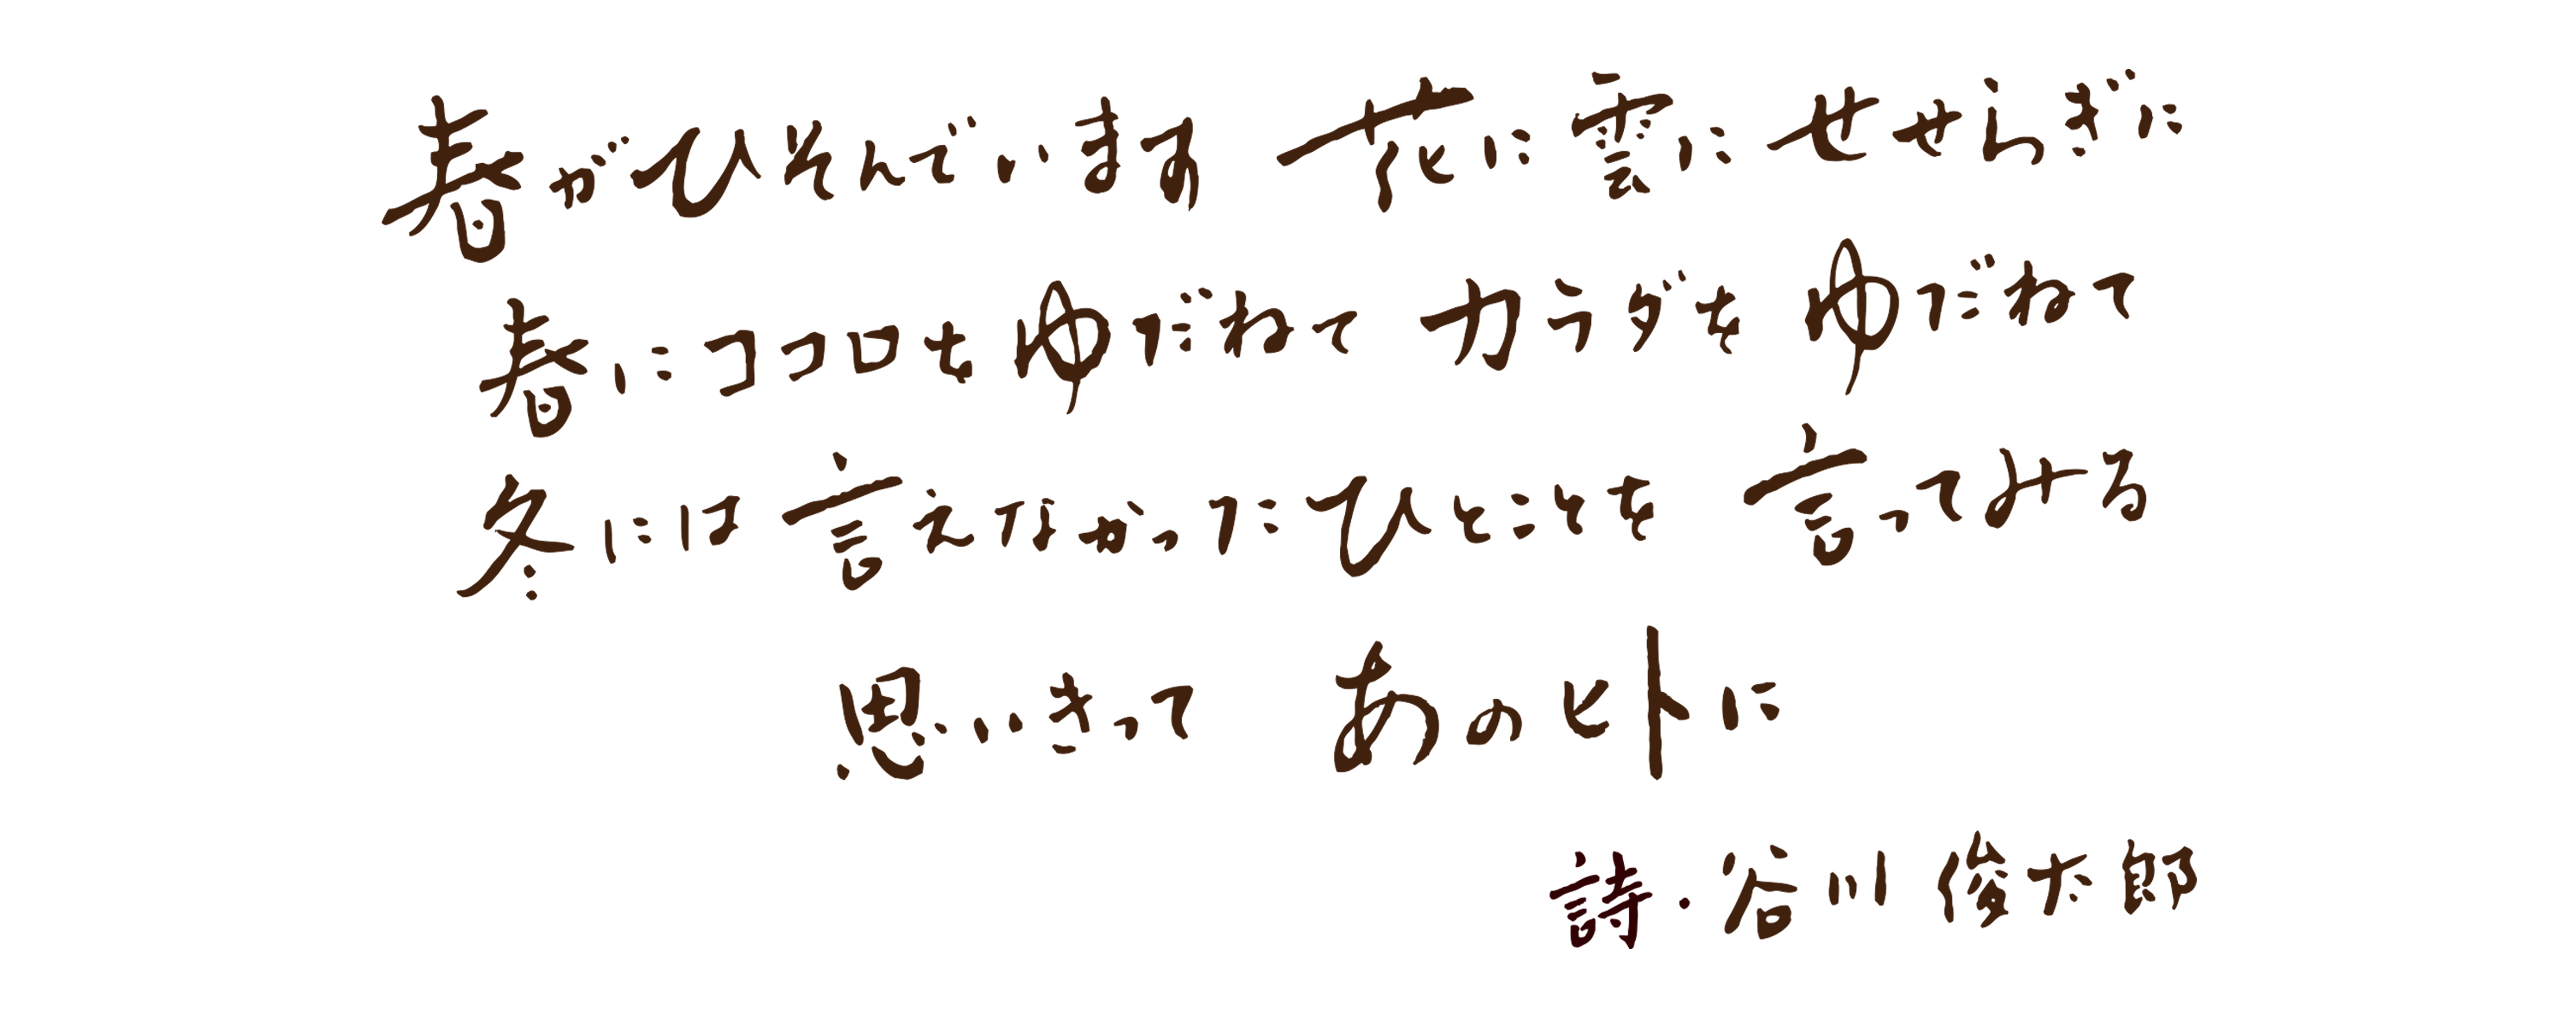 春がひそんでいます 花に雲にせせらぎに
春にココロをゆだねて カラダをゆだねて
冬には言えなかったひとことを 言ってみる
思いきって あのヒトに
詩・谷川俊太郎